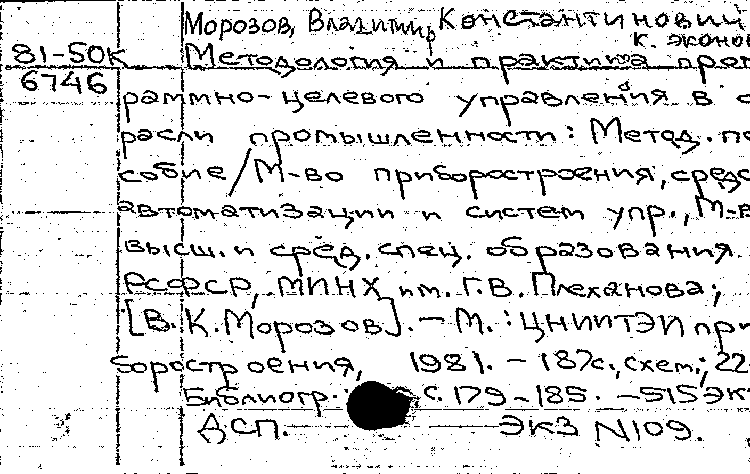 Морозов, Владимир Константинович
к. эконо
81-50к
Методология и практика прог
6746
раммно-целевого управления в о
расли промышленности: Метод. по
собие/М-во приборостроения, средс
автоматизации и систем упр., М-в
высш. и сред. спец. образования
РСФСР, МИНХ им. Г.В. Плеханова;
[В.К. Морозов]. – М. : ЦНИИТЭИ при
боростроения, 1981. – 187с., схем.; 22
Библиогр.: с. 179-185. – 515 эк
ДСП. экз N109.